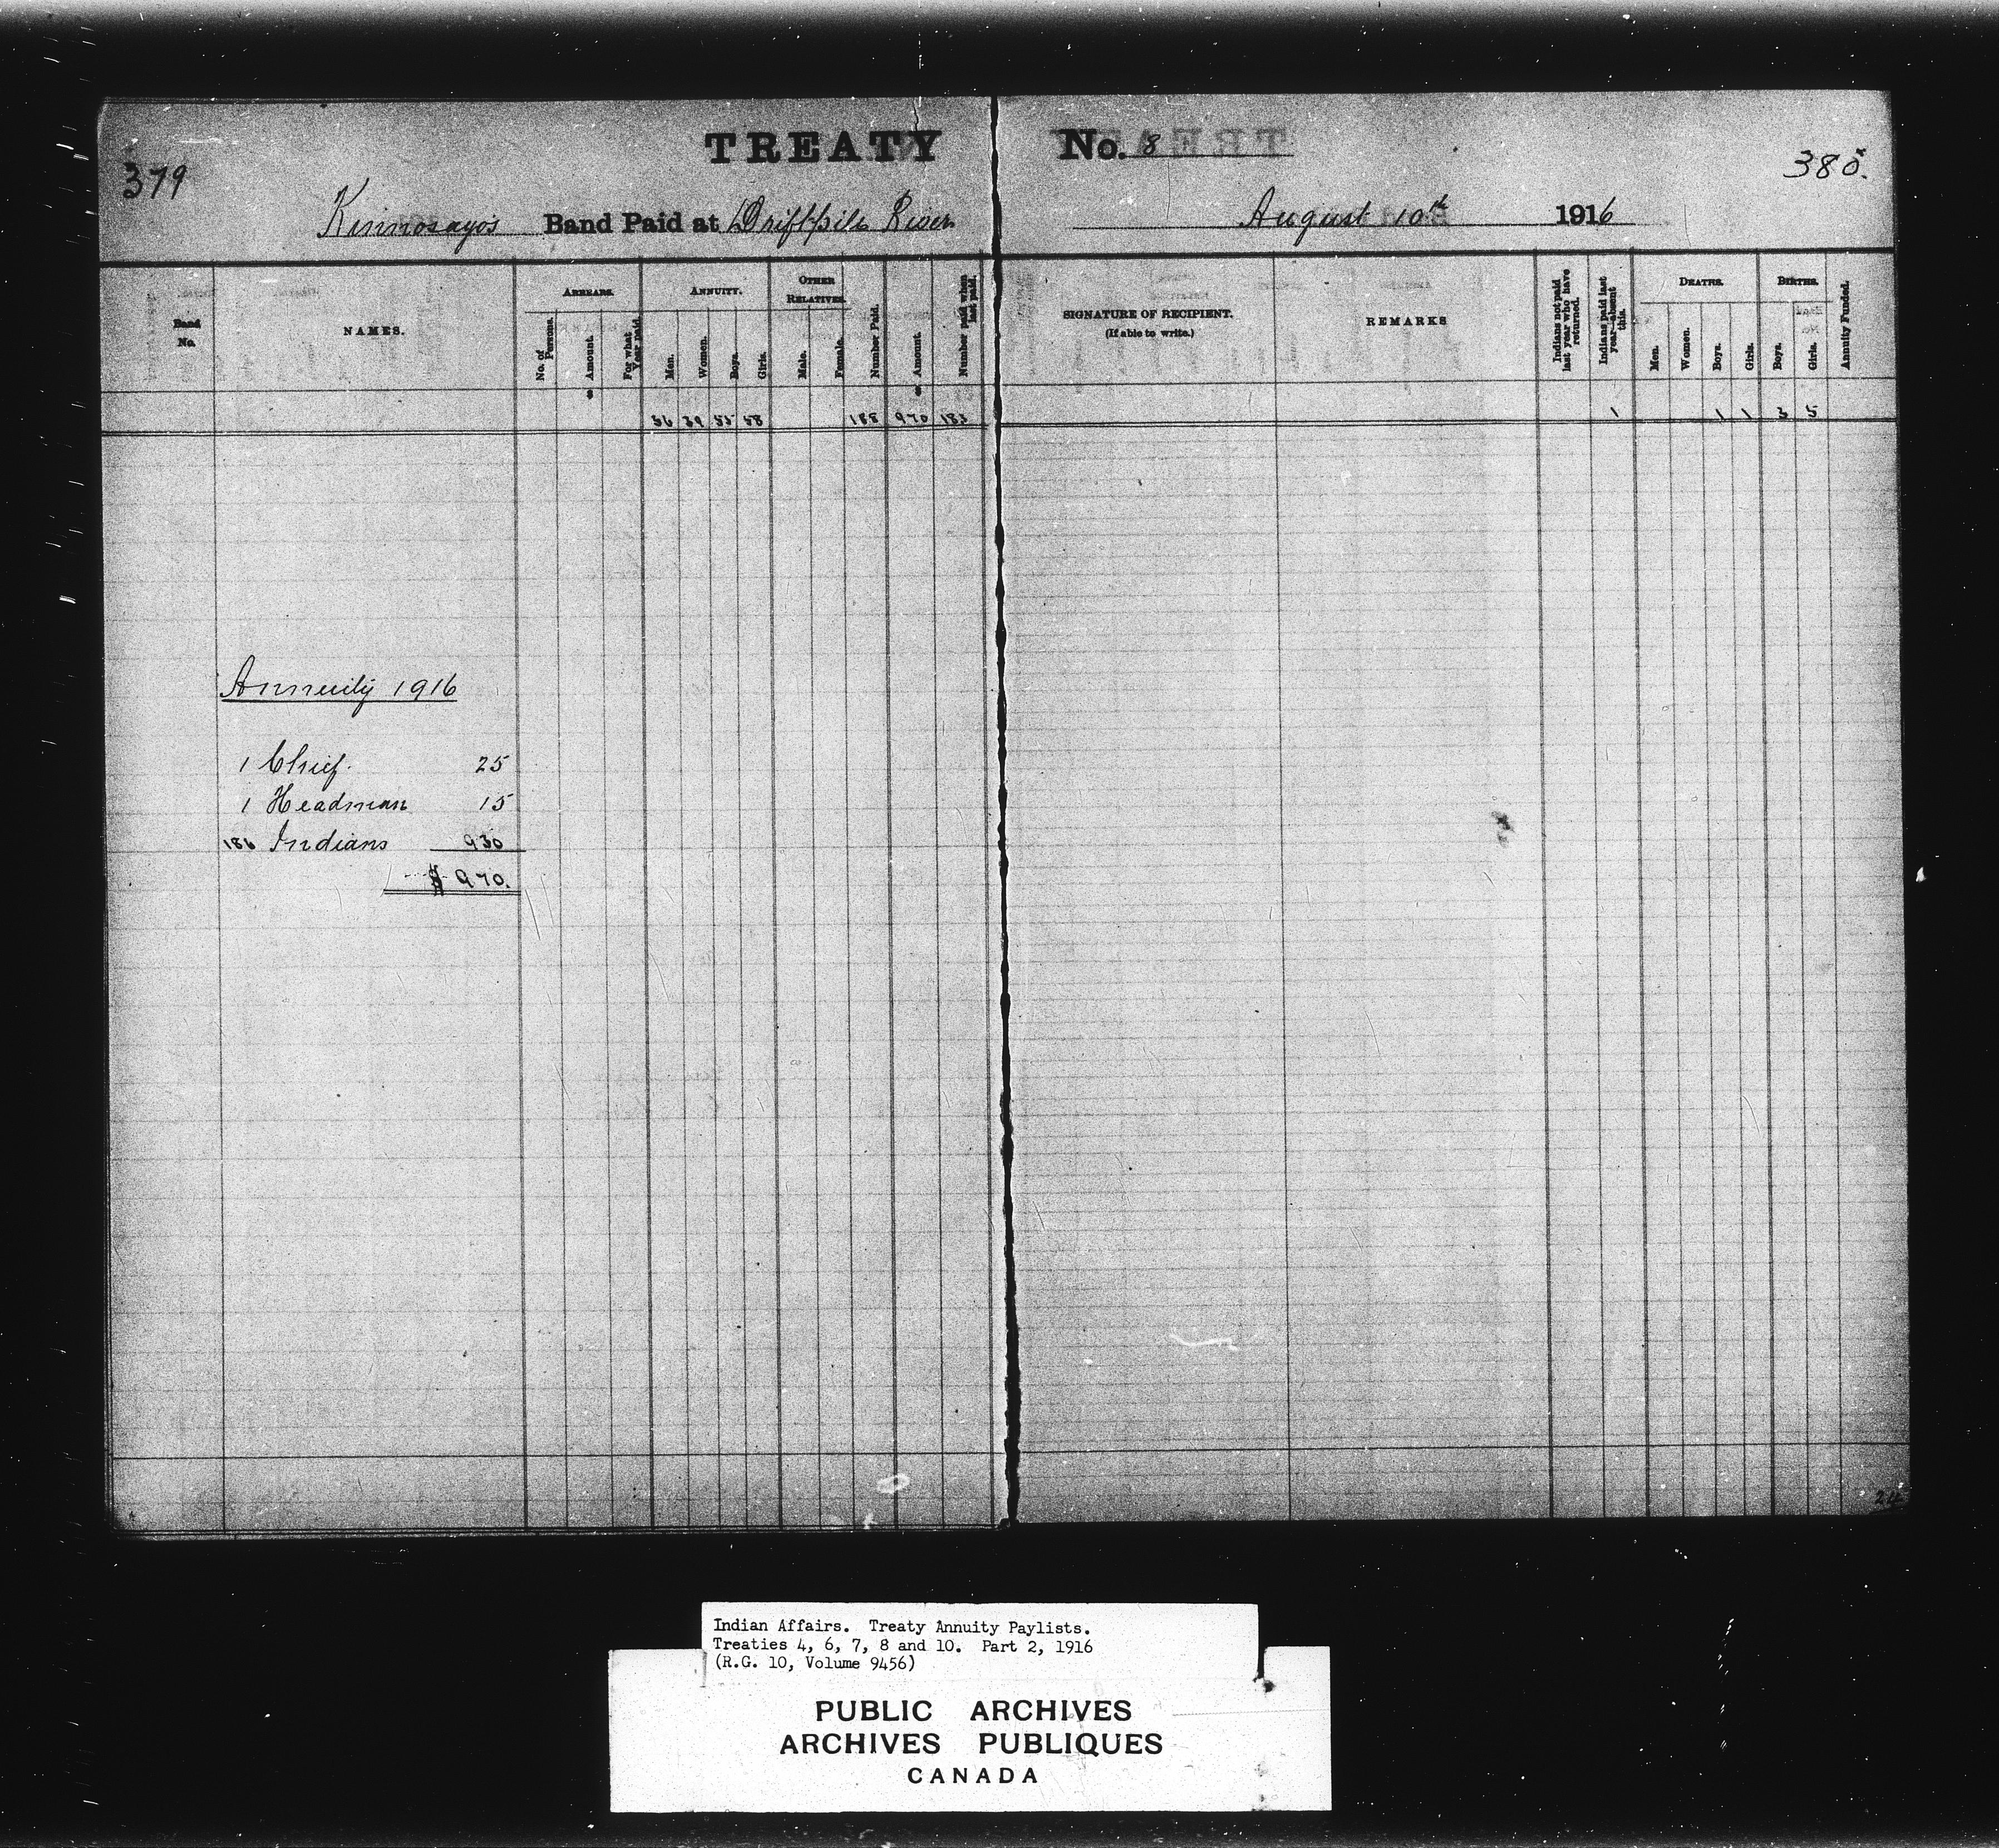 TREATY No. 8
379
380.
Kinnosayo's Band Paid at Driftpile River August 10th 1916
Band No.
NAMES.
ARREARS.
No. of Persons.
Amount.
For what Year paid.
ANNUITY.
Men.
Women.
Boys.
Girls.
OTHER RELATIVES.
Male.
Female.
Number Paid.
Amount.
Number paid when last paid.
SIGNATURE OF RECIPIENT.
(If able to write.)
REMARKS
Indians not paid last year who have returned.
Indians paid last year—absent this.
DEATHS.
Men.
Women.
Boys.
Girls.
BIRTHS.
Boys.
Girls.
Annuity Funded.
36 39 55 58 188 970 183 1 1 1 3 5
Annuity 1916
1 Chief. 25
1 Headman 15
186 Indians 930
$ 970.
Indian Affairs. Treaty Annuity Paylists.
Treaties 4, 6, 7, 8 and 10. Part 2, 1916
(R.G. 10, Volume 9456)
PUBLIC ARCHIVES
ARCHIVES PUBLIQUES
CANADA